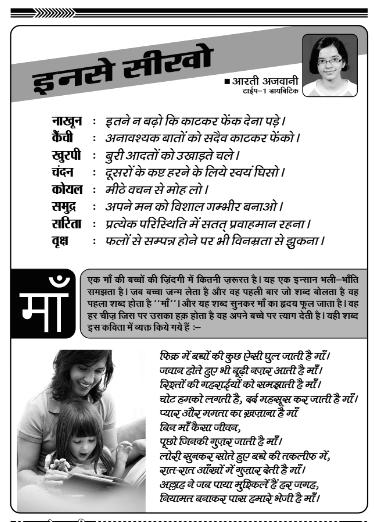 इनसे सीखो
■ आरती अजवानी
टाईप-1 डायबिटिक
नाखून : इतने न बढ़ो कि काटकर फेंक देना पड़े।
कैंची : अनावश्यक बातों को सदैव काटकर फेंको।
खुरपी : बुरी आदतों को उखाड़ते चले।
चंदन : दूसरों के कष्ट हरने के लिये स्वयं घिसो।
कोयल : मीठे वचन से मोह लो।
समुद्र : अपने मन को विशाल गम्भीर बनाओ।
सरिता : प्रत्येक परिस्थिति में सतत् प्रवाहमान रहना।
वृक्ष : फलों से सम्पन्न होने पर भी विनम्रता से झुकना।
माँ
एक माँ की बच्चों की ज़िंदगी में कितनी ज़रूरत है। यह एक इन्सान भली-भाँति
समझता है। जब बच्चा जन्म लेता है और वह पहली बार जो शब्द बोलता है वह
पहला शब्द होता है "माँ"। और यह शब्द सुनकर माँ का हृदय फूल जाता है। वह
हर चीज़ जिस पर उसका हक़ होता है वह अपने बच्चे पर त्याग देती है। यही शब्द
इस कविता में व्यक्त किये गये हैं :-
फिक्र में बच्चों की कुछ ऐसी घुल जाती है माँ।
जवान होते हुए भी बूढ़ी नज़र आती है माँ।
रिश्तों की गहराईयों को समझाती है माँ।
चोट हमको लगती है, दर्द महसूस कर जाती है माँ।
प्यार और ममता का ख़ज़ाना है माँ
बिन माँ कैसा जीवन,
पूछो जिनकी गुज़र जाती है माँ।
लोरी सुनकर सोते हुए बच्चे की तकलीफ में,
रात-रात आँखों में गुज़ार देती है माँ।
अल्लाह ने जब पाया मुश्किलें हैं हर जगह,
नियामत बनाकर पास हमारे भेजी है माँ।